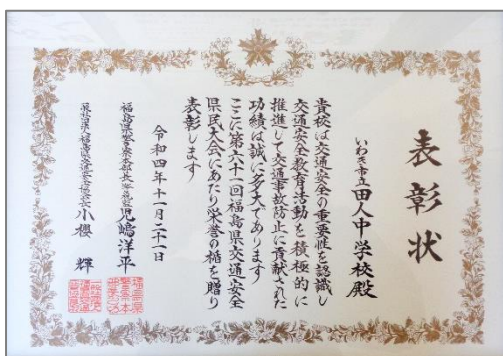 表彰状
いわき市立田人中学校殿
貴校は交通安全の重要性を認識し
交通安全教育活動を積極的に
推進して交通事故防止に貢献された
功績は誠に多大であります
ここに第六十一回福島県交通安全
県民大会にあたり栄誉の楯を贈り
表彰します
令和四年十一月二十一日
福島県警察本部長 児嶋洋平
小櫻 輝